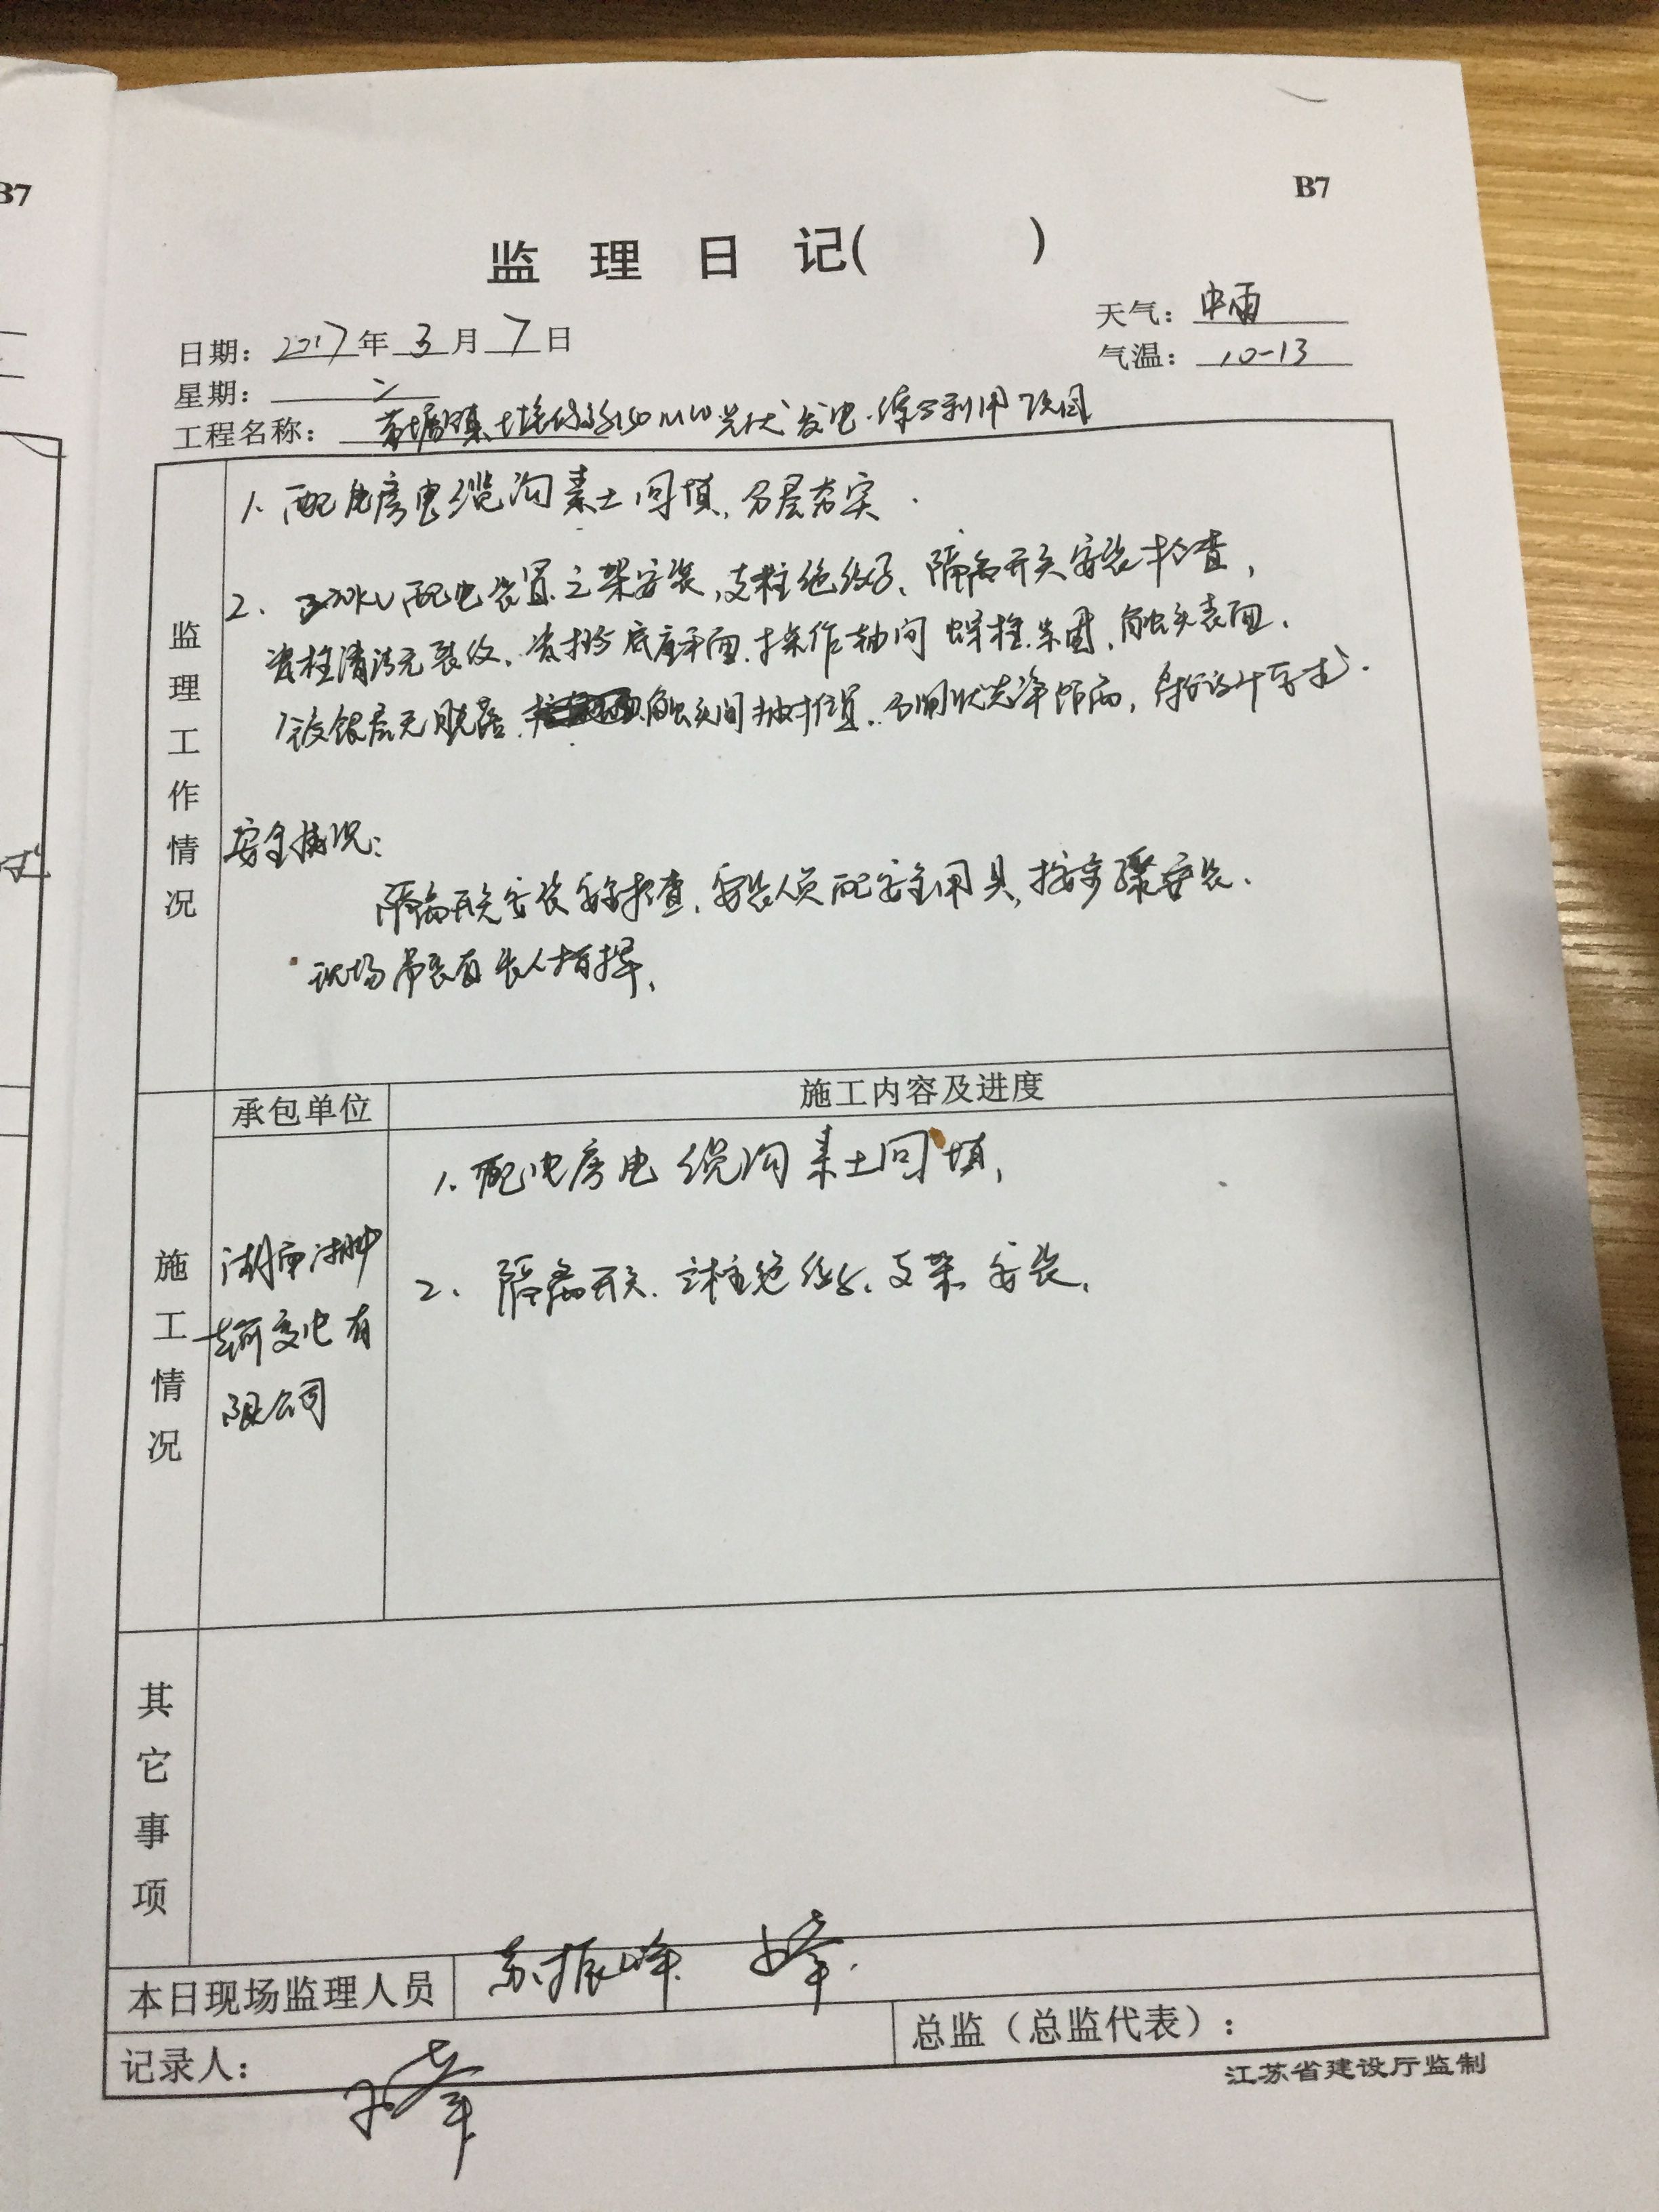 B7
B7
监理日记( )
天气：中雨
日期：2017年3月7日
气温：10-13
星期：二
工程名称： 镇 150MW光伏发电综合利用项目
监理工作情况
1. 配电房电缆沟素土回填，分层夯实.
2. 配电装置支架安装，支柱绝缘子、隔离开关安装检查，
瓷柱清洁无裂纹、底座平面、操作轴间螺栓紧固、触头表面、
镀银层无脱落、触头间相对位置、分闸状态净距离，符合设计要求.
安全情况：
隔离开关安装 检查，安装人员配安全用具，按步骤安装.
现场吊装有专人指挥.
承包单位
施工内容及进度
施工情况
湖南
变电有
限公司
1. 配电房电缆沟素土回填，
2. 隔离开关、支柱绝缘子、支架安装，
其它事项
本日现场监理人员
苏振峰
记录人：
总监（总监代表）：
江苏省建设厅监制